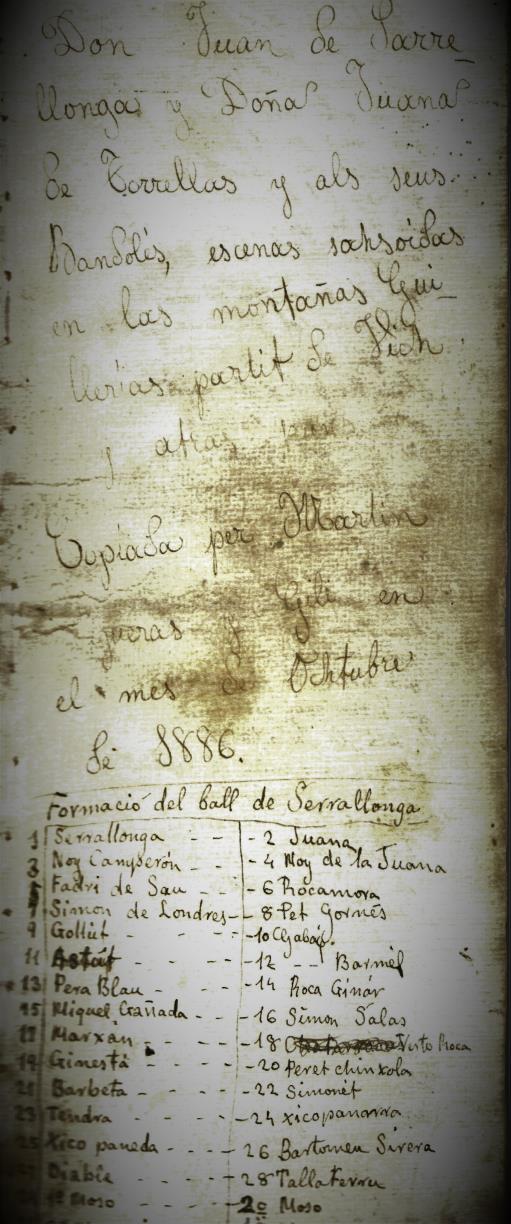 Don Juan de Sarre_
llonga y Doña Juana
de Torrellas y als seus
Bandolés, escenas sahsoidas
en las montañas Gui_
llerias partit de Vich
y atras
Copiada per Martin
y Gili en
el mes de Ochtubre
de 1886.
Formació del ball de Serrallonga
1 Serrallonga - - - 2 Juana
3 Noy Canyserón - - 4 Noy de la Juana
5 Fadri de Sau - - - 6 Rocamora
7 Simon de Londres - - 8 Pet Gornés
9 Gollut - - - - 10
11 Astut - - - - 12 - - Barmèl
13 Pera Blau - - - - 14 Roca Ginár
15 Miquel Cañada - - - - 16 Simon Salas
17 Marxan - - - - 18 Roca
19 Ginestá - - - - 20 Peret chinxola
21 Barbeta - - - - 22 Simonét
23 Tendra - - - - 24 xicopanarra
25 Xico paneda - - - - 26 Bartomeu Sirera
27 Diable - - - - 28 Tallaferru
1º Moso - - - - 2º Moso